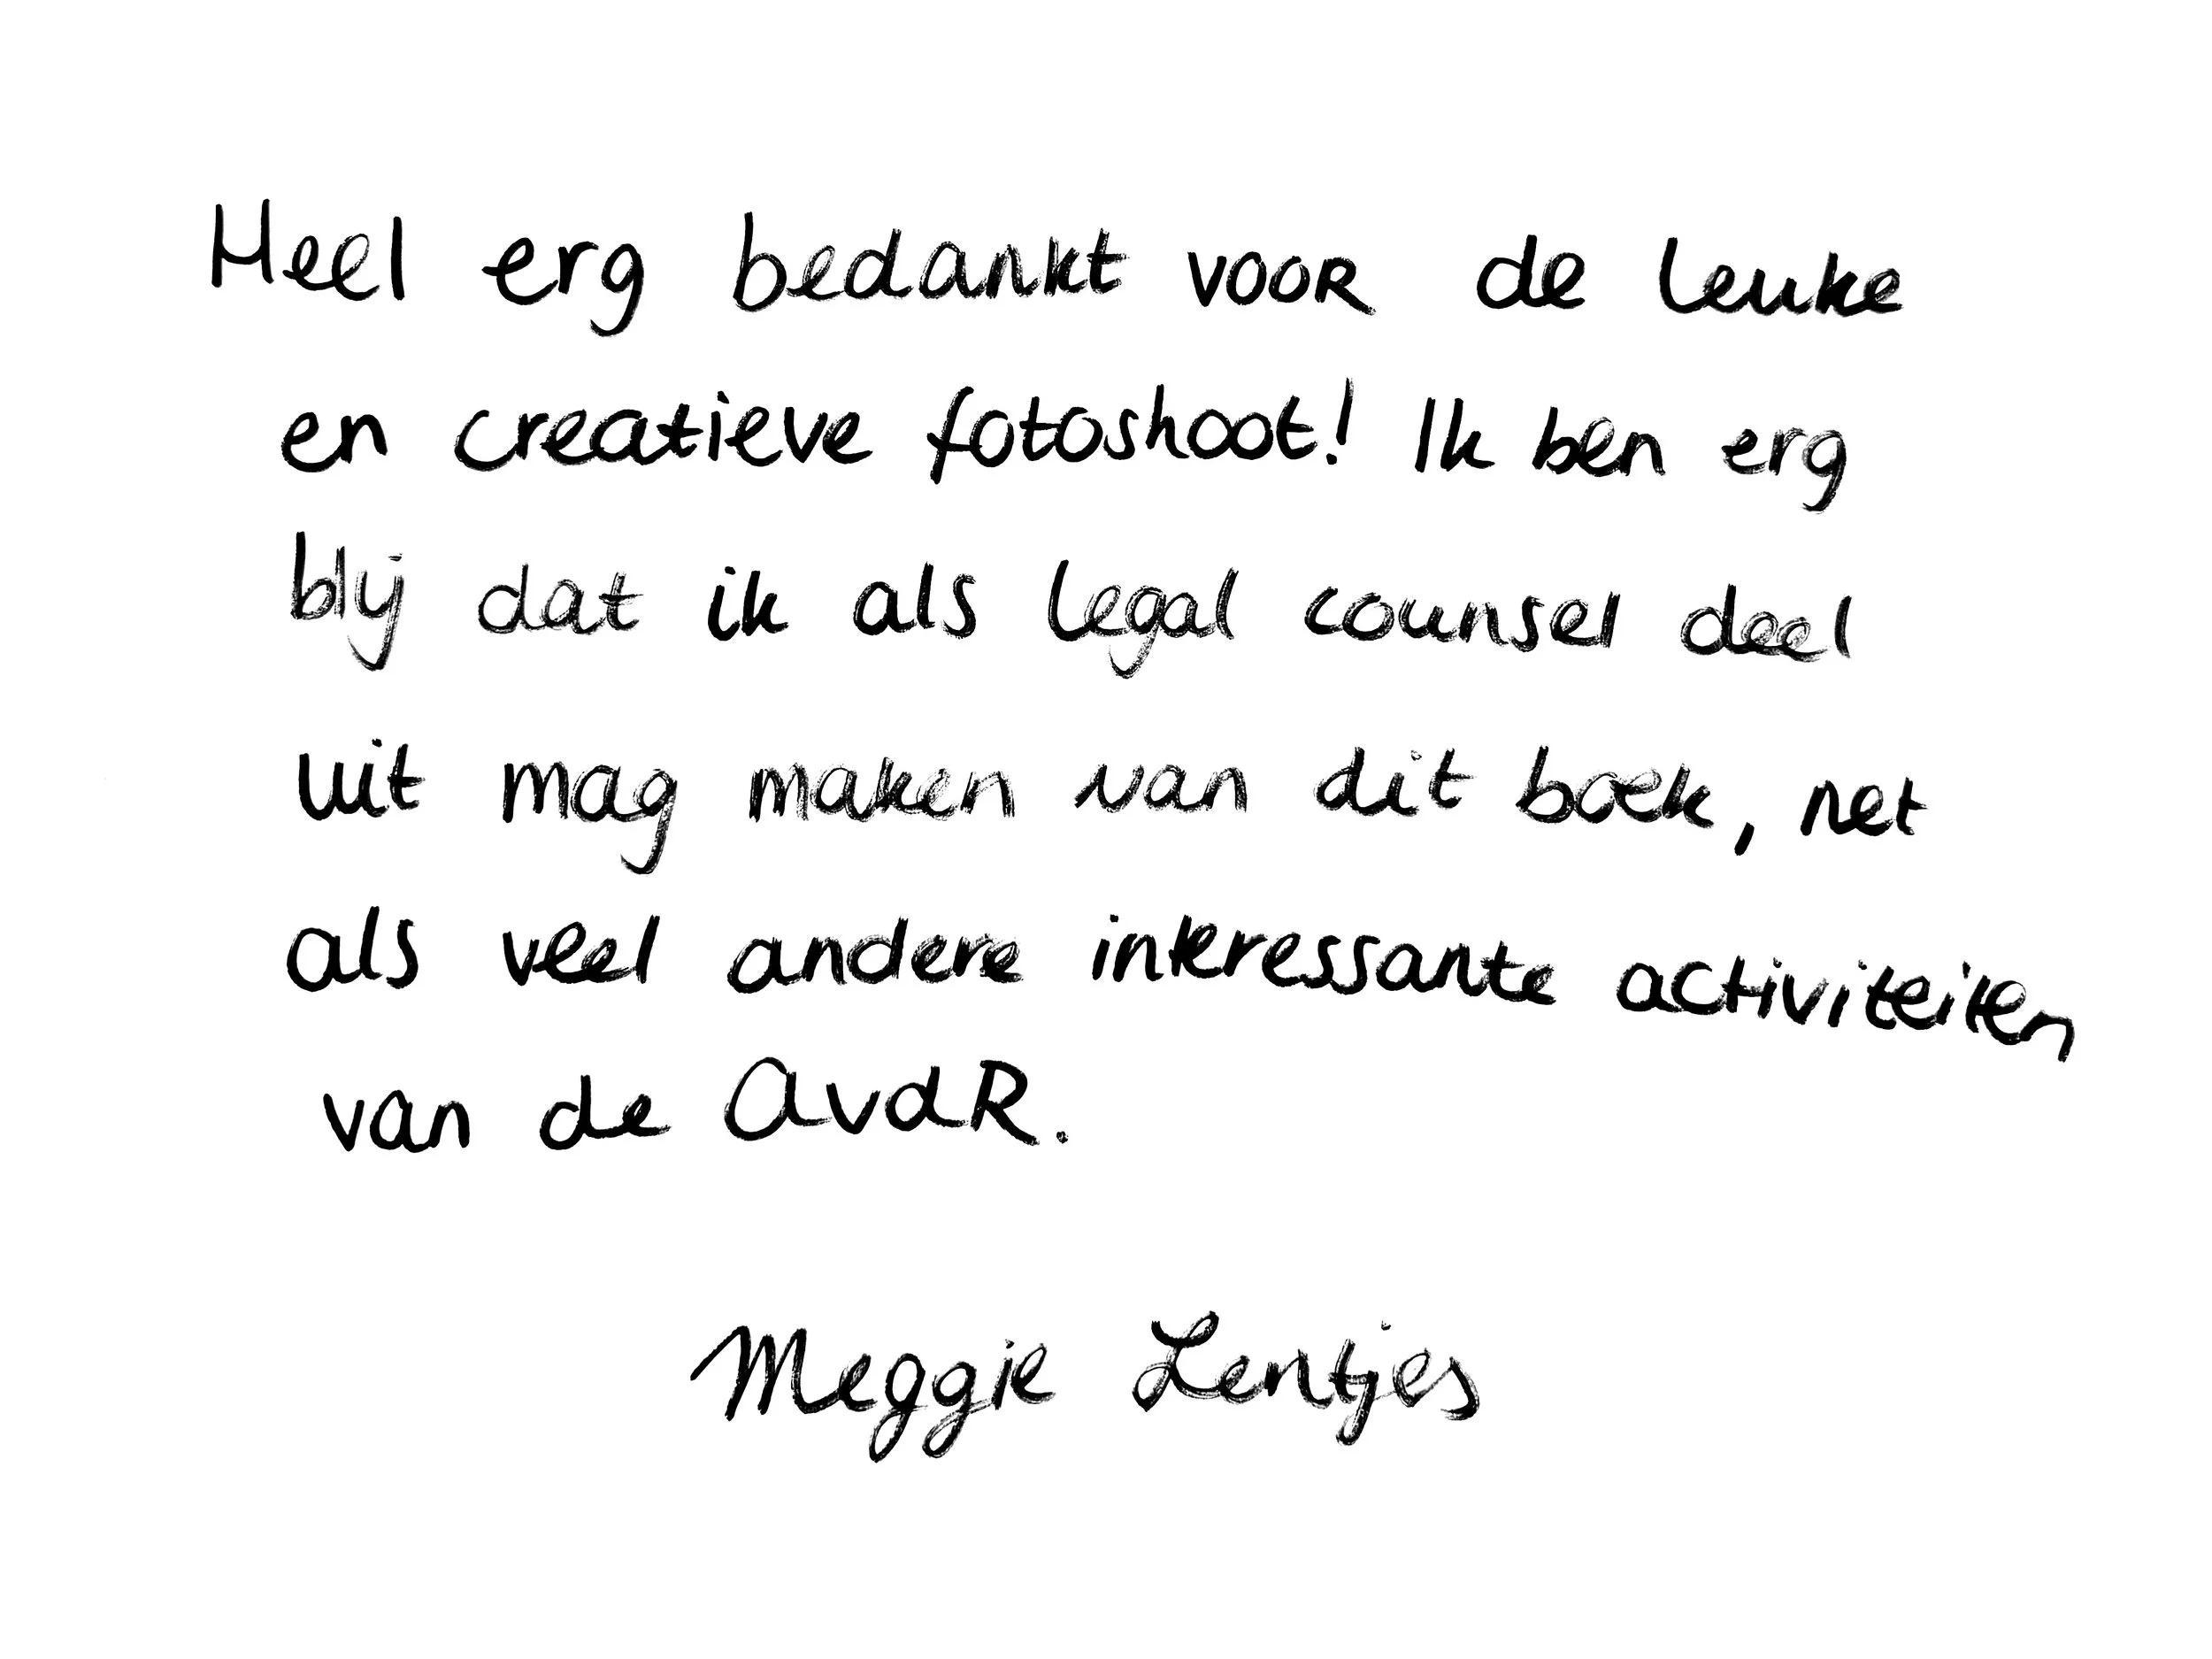 Heel erg bedankt voor de leuke
en creatieve fotoshoot! Ik ben erg
blij dat ik als legal counsel deel
uit mag maken van dit boek, net
als veel andere interessante activiteiten
van de AvdR.
Meggie Lentjes